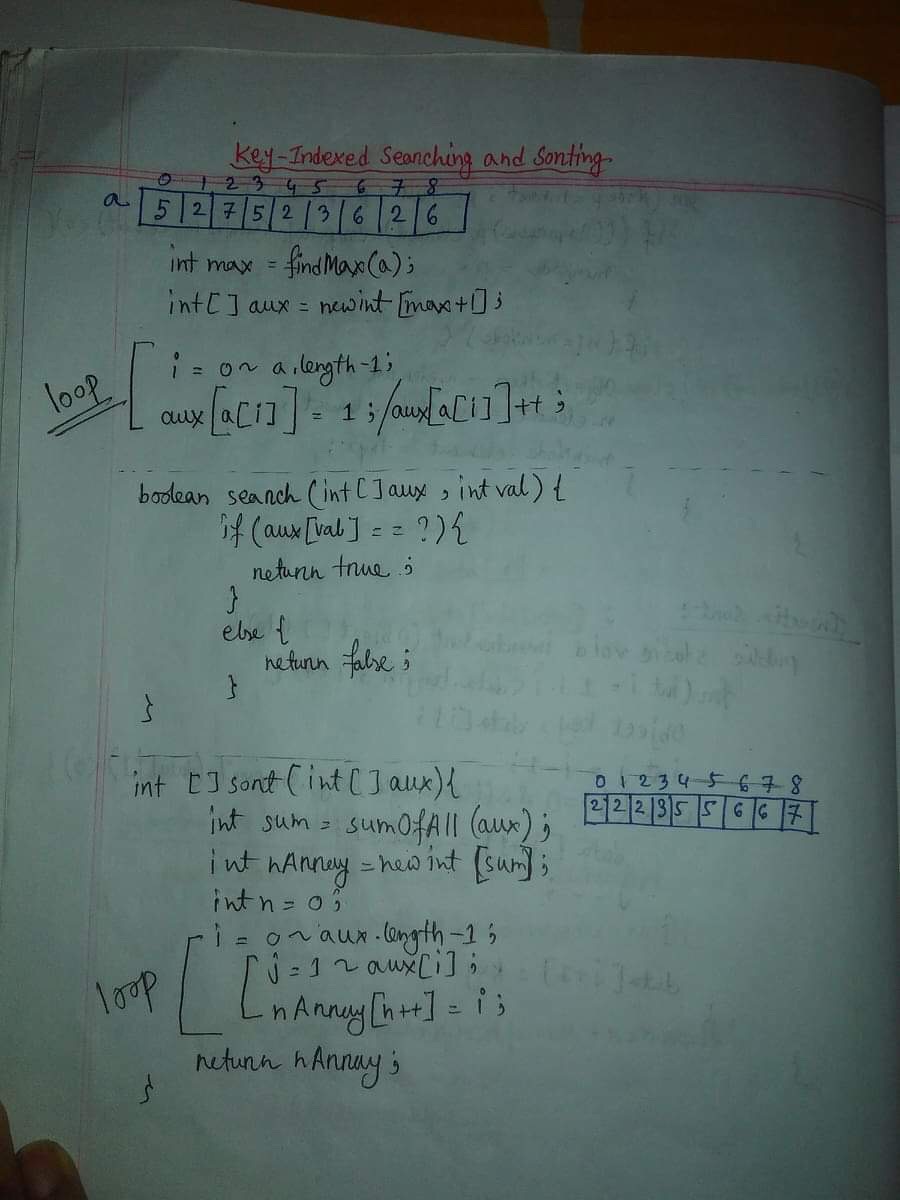 Key-Indexed Searching and Sorting
0 1 2 3 4 5 6 7 8
a 5 2 7 5 2 3 6 2 6
int max = findMax(a);
int[] aux = new int [max+1];
loop
i = 0 ~ a.length-1;
aux[a[i]] = 1; / aux[a[i]]++;
boolean search (int[] aux, int val) {
if (aux[val] == ?) {
return true;
}
else {
return false;
}
}
int [] sort (int[] aux) {
int sum = sumOfAll (aux);
int nArray = new int [sum];
int n = 0;
loop
i = 0 ~ aux.length-1;
j = 1 ~ aux[i];
nArray[n++] = i;
return nArray;
}
0 1 2 3 4 5 6 7 8
2 2 2 3 5 5 6 6 7